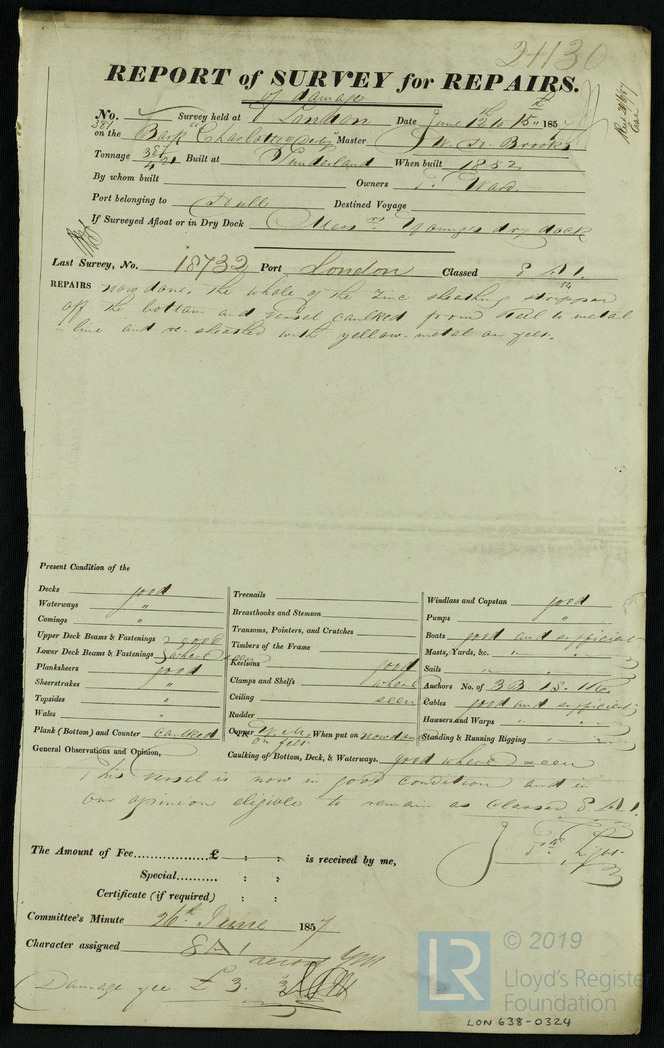 24130
REPORT of SURVEY for REPAIRS.
of damage
No. Survey held at London Date June 12th to 15th 1857
on the Bark "Charlotte Master W. H. Brooks
Tonnage 381 Built at Sunderland When built 1852
By whom built Owners T. Ward
Port belonging to Hull Destined Voyage
If Surveyed Afloat or in Dry Dock Messrs Youngs dry dock
Last Survey, No. 18732 Port London Classed 8 A 1.
REPAIRS now done, the whole of the Zinc sheathing stripped
off the bottom and vessel caulked from keel to metal
line and re-sheathed with yellow-metal on felt.
Present Condition of the
Decks good
Waterways "
Comings "
Upper Deck Beams & Fastenings } good
Lower Deck Beams & Fastenings } where seen
Planksheers good
Sheerstrakes "
Topsides "
Wales "
Plank (Bottom) and Counter Caulked
Treenails
Breasthooks and Stemson
Transoms, Pointers, and Crutches
Timbers of the Frame
Keelsons good
Clamps and Shelfs where
Ceiling seen
Rudder
Copper Y. M. When put on now done
on felt
Caulking of Bottom, Deck, & Waterways. good where seen
Windlass and Capstan good
Pumps "
Boats good and sufficient
Masts, Yards, &c. " "
Sails " "
Anchors No. of 3 B. 1 S. 1 Ke.
Cables good and sufficient
Hausers and Warps " "
Standing & Running Rigging " "
General Observations and Opinion,
This vessel is now in good condition and in
our opinion eligible to remain as classed 8 A 1.
The Amount of Fee................£ : : is received by me,
Special.......... : :
Certificate (if required) : :
Committee's Minute 26th June 1857
Character assigned 8 A 1
Damage fee £ 3. 3
LR © 2019
Lloyd's Register
Foundation
LON 638-0324